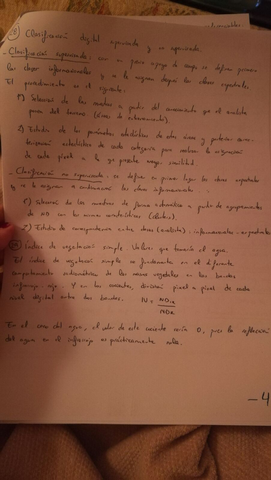 ⑧ Clasificación digital supervisada y no supervisada.
- Clasificación supervisada: con un previo apoyo de campo se definen primero
las clases informacionales y a la imagen después las clases espectrales.
El procedimiento es el siguiente:
1º) Selección de las muestras a partir del conocimiento que el analista
posee del terreno (áreas de entrenamiento).
2) Estudio de los parámetros estadísticos de estas áreas y posterior
estadística de cada categoría para realizar la asignación
de cada píxel a la que presente mayor similitud.
- Clasificación no supervisada: se definen primero las clases espectrales
y a la imagen a continuación las clases informacionales.
1) Selección de las muestras de forma automática a partir de agrupamientos
de ND con los mismos (clusters).
2) Estudio de correspondencia entre clases (analista) - informacionales - espectrales
Índice de vegetación simple. Valores que tomaría el agua.
El índice de vegetación simple se fundamenta en el diferente
comportamiento de las masas vegetales en las bandas
infrarrojo - rojo. Y es un cociente, división píxel a píxel de cada
nivel digital entre dos bandas. N =
En el caso del agua, el valor de este cociente sería 0, pues la reflexión
del agua en el infrarrojo es prácticamente nula.
- 4